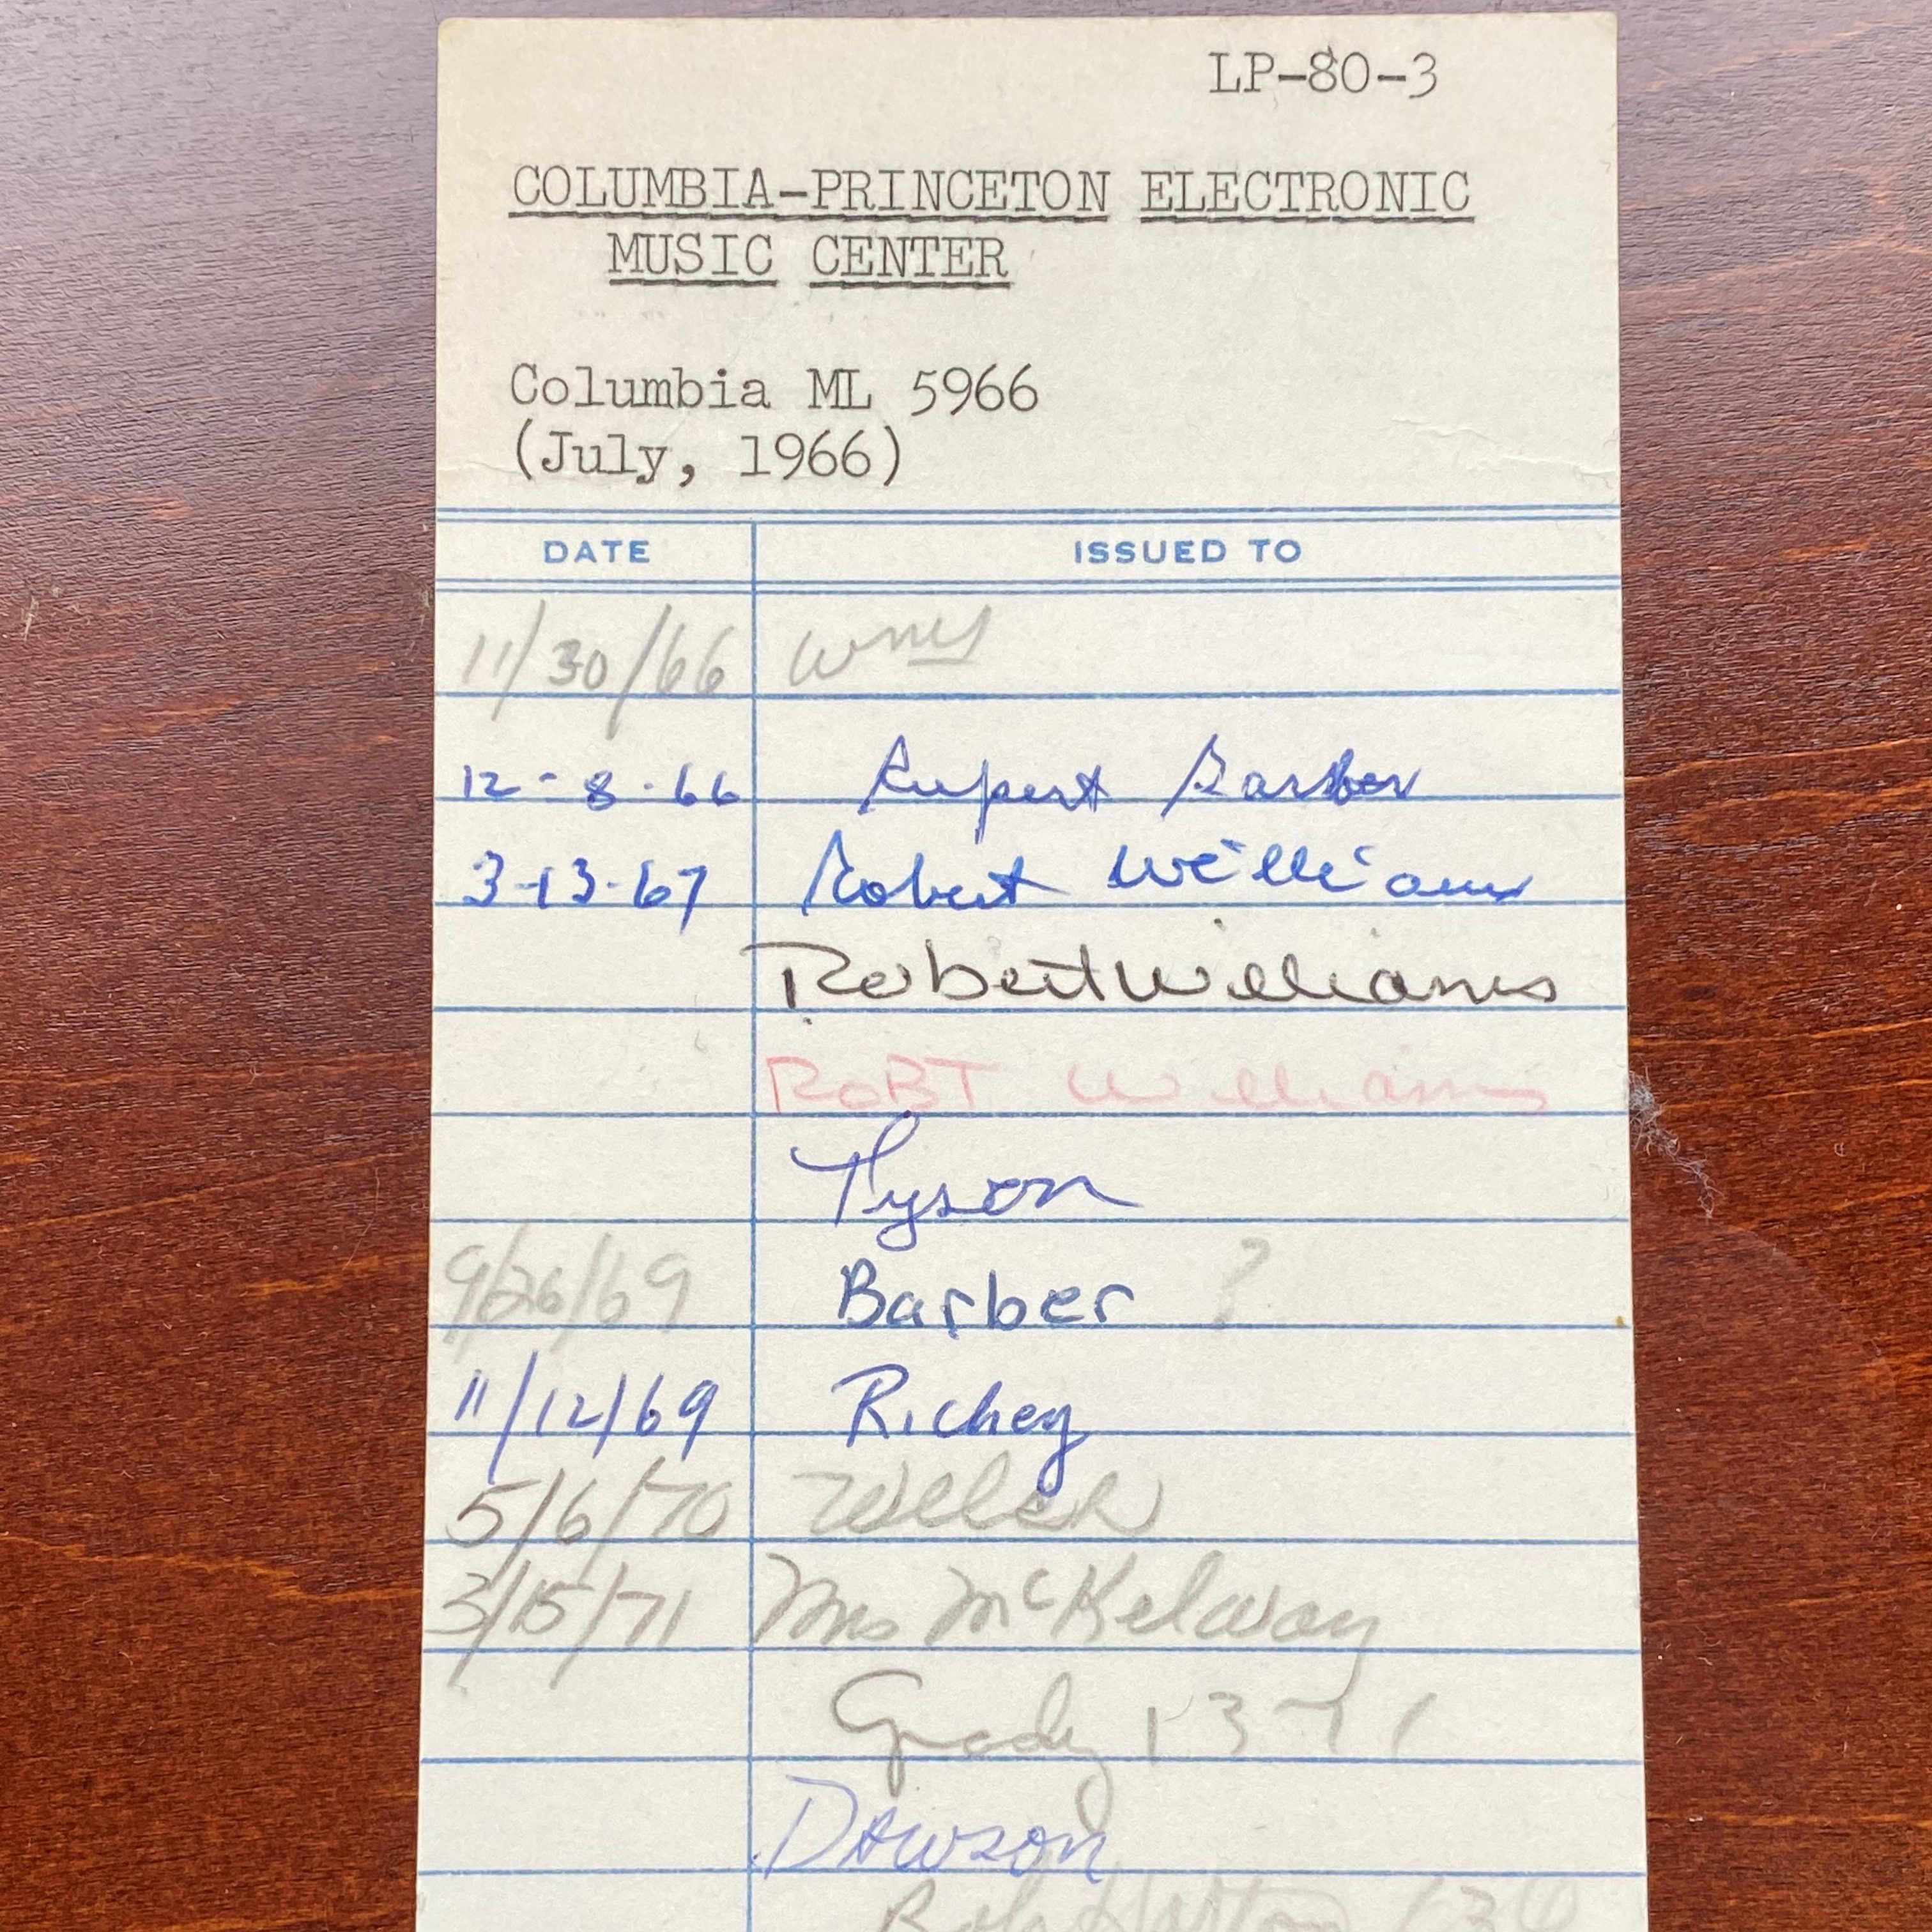 LP-80-3
COLUMBIA-PRINCETON ELECTRONIC
MUSIC CENTER
Columbia ML 5966
(July, 1966)
DATE ISSUED TO
11/30/66
12-8-66 Rupert Barber
3-13-67 Robert Williams
Robert Williams
ROBT Williams
Tyson
9/26/69 Barber ?
11/12/69 Richey
5/6/70 Welsh
3/15/71 Mrs McKelway
Grady 1371
Dawson